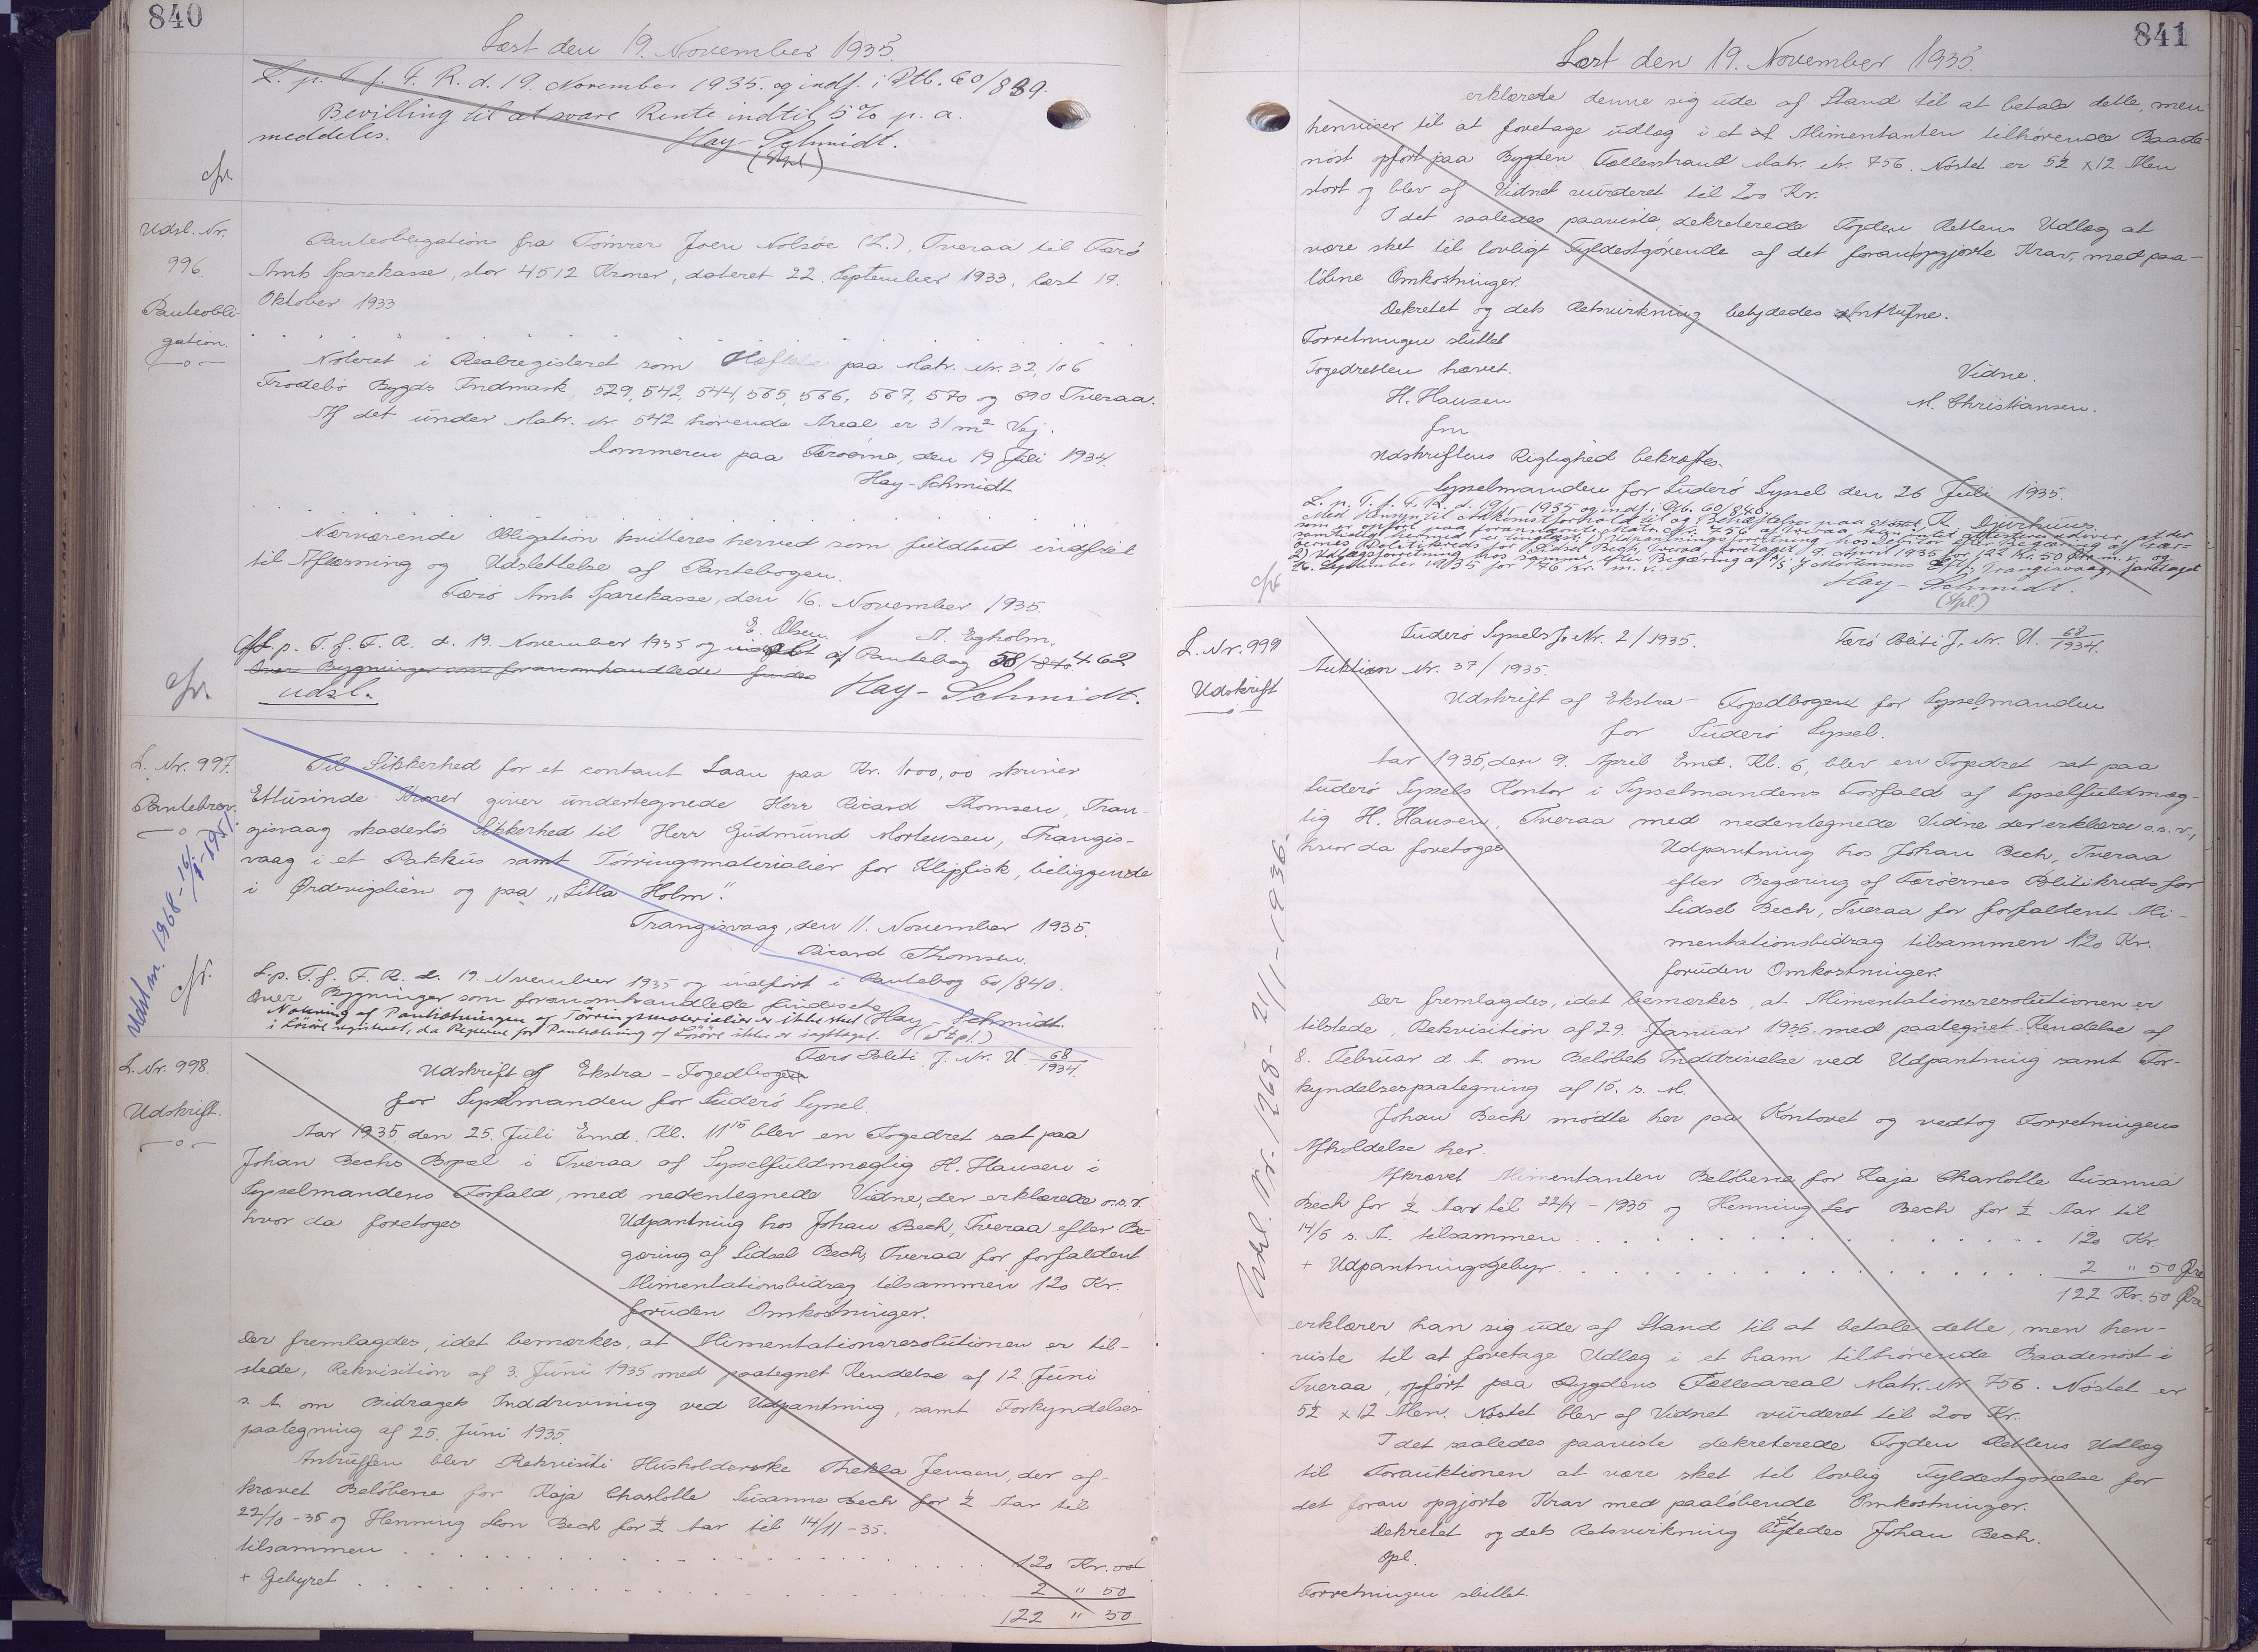 840
Læst den 19. November 1935.
L. p. T. f. F. R. d. 19. November 1935. og indf. i Ptb. 60/839.
Bevilling til at svare Rente indtil 5% p. a.
meddeles.
Hay-Schmidt.
(Stpl)
Udsl. Nr.
996.
Panteobli-
gation.
Panteobligation fra Tømrer Joen Nolsøe (L.), Tveraa til Færø
Amts Sparekasse, stor 4512 Kroner, dateret 22. September 1933, læst 19.
Oktober 1933
Noteret i Realregisteret som Hæftelse paa Matr. Nr. 32, 106
Frodebø Bygds Indmark, 529, 542, 544, 565, 566, 567, 570 og 690 Tveraa.
Af det under Matr. Nr. 542 hørende Areal er 31 m² Vej.
Sorenskriveren paa Færøerne, den 19 Juli 1934.
Hay-Schmidt
Nærværende Obligation kvitteres herved som fuldtud indfriet
til Aflæsning og Udslettelse af Pantebogen.
Færø Amts Sparekasse, den 16. November 1935.
E. Olsen / A. Egholm.
Afl. p. T. f. F. R. d. 19. November 1935 og af Pantebog 58/462
Over Bygninger som foranomhandlede findes
udsl.
Hay-Schmidt.
L. Nr. 997.
Pantebrev.
Udsl. nr. 1968-16/1-1951.
Til Sikkerhed for et contant Laan paa Kr. 1000,00 skriver
Ettusinde Kroner giver undertegnede Herr Ricard Thomsen, Tran-
gisvaag skadesløs Sikkerhed til Herr Gudmund Mortensen, Trangis-
vaag i et Pakhus samt Tørringsmaterialier for Klipfisk, beliggende
i Ørdevigslien og paa "Litla Holm".
Trangisvaag, den 11. November 1935.
Ricard Thomsen.
L. p. T. f. F. R. d. 19. November 1935 og indført i Pantebog 60/840.
Over Bygninger som foranomhandlede findes etc
Notering af Pantsætningen af Tørringsmaterialier er ikke sket
i Løsøreregisteret, da Reglerne for Pantsætning af Løsøre ikke er iagttaget.
Hay-Schmidt.
(Stpl.)
L. Nr. 998.
Udskrift.
Færø Politi J. Nr. U 68/1934.
Udskrift af Ekstra-Fogedbogen
for Sysselmanden for Suderø Syssel.
Aar 1935, den 25. Juli Emd. Kl. 11¹⁵ blev en Fogedret sat paa
Johan Bechs Bopæl i Tveraa af Sysselfuldmægtig H. Hansen i
Sysselmandens Forfald, med nedentegnede Vidne, der erklærede o.s.v.
hvor da foretoges
Udpantning hos Johan Bech, Tveraa efter Be-
gæring af Sidsel Bech, Tveraa for forfaldent
Alimentationsbidrag tilsammen 120 Kr.
foruden Omkostninger.
Der fremlagdes, idet bemærkes, at Alimentationsresolutionen er til-
stede, Rekvisition af 3. Juni 1935 med paategnet Kendelse af 12 Juni
s. A. om Bidragets Inddrivning ved Udpantning, samt Forkyndelses-
paategning af 25. Juni 1935.
Antruffen blev Rekvisiti Husholderske Thekla Jensen, der af-
krævet Beløbene for Kaja Charlotte Susanne Bech for ½ Aar til
22/10-35 og Henning Leon Bech for ½ Aar til 14/11-35.
tilsammen . . . 120 Kr. 00
+ Gebyret . . . 2 " 50
122 " 50
841
Læst den 19. November 1935.
erklærede denne sig ude af Stand til at betale dette, men
henviser til at foretage udlæg i et af Alimentanten tilhørende Baade-
nøst opført paa Bygden Fællesstrand Matr. Nr. 756. Nøstet er 5½ x 12 Alen
stort og blev af Vidnet vurderet til 200 Kr.
I det saaledes paaviste, dekreterede Fogden Rettens Udlæg at
være sket til lovligt Fyldestgørende af det foranopgjorte Krav, med paa-
løbne Omkostninger.
Dekretet og dets Retsvirkning betydedes Antrufne.
Forretningen sluttet
Fogedretten hævet.
Vidne.
H. Hansen
M. Christiansen.
fm
Udskriftens Rigtighed bekræftes.
Sysselmanden for Suderø Syssel den 26 Juli 1935.
A. Djurhuus.
L. p. T. f. F. R. d. 19/11 1935 og indf. i Ptb. 60/840.
Med Hensyn til Adkomstforhold til og Behæftelser paa Nøstet
som er opført paa forannævnte Matr. Nr. 756 af Tveraa kan intet attesteres udover, at der
samtidig hermed er tinglæst: 1) Udpantningsforretning hos Debitor efter Begæring af Fær-
øernes Politikreds for Sidsel Bech, Tveraa, foretaget 9. April 1935 for 122 Kr. 50 Øre m. v. og
2) Udlægsforretning hos samme efter Begæring af Mortensens Eftf., Trangisvaag, foretaget
26. September 1935 for 176 Kr. m. v.
Hay-Schmidt.
(Stpl.)
L. Nr. 999
Udskrift
Udsl. Nr. 1268-21/1-1936.
Suderø Syssels J. Nr. 2/1935.
Færø Politi J. Nr. U. 68/1934.
Auktion Nr. 37/1935.
Udskrift af Ekstra-Fogedbogen for Sysselmanden
for Suderø Syssel.
Aar 1935, den 9. April Emd. Kl. 6, blev en Fogedret sat paa
Suderø Syssels Kontor i Sysselmandens Forfald af Sysselfuldmæg-
tig H. Hansen, Tveraa med nedentegnede Vidne der erklærer o.s.v.,
hvor da foretoges
Udpantning hos Johan Bech, Tveraa
efter Begæring af Færøernes Politikreds for
Sidsel Bech, Tveraa for forfaldent Ali-
mentationsbidrag tilsammen 120 Kr.
foruden Omkostninger.
Der fremlagdes, idet bemærkes, at Alimentationsresolutionen er
tilstede, Rekvisition af 29. Januar 1935 med paategnet Kendelse af
8. Februar d. A. om Beløbets Inddrivelse ved Udpantning samt For-
kyndelsespaategning af 15. s. M.
Johan Bech mødte her paa Kontoret og vedtog Forretningens
Afholdelse her.
Afkrævet Alimentanten Beløbene for Kaja Charlotte Susanna
Bech for ½ Aar til 22/4-1935 og Henning Leo Bech for ½ Aar til
14/5 s. A. tilsammen . . . 120 Kr.
+ Udpantningsgebyr . . . 2 " 50 Øre
122 Kr. 50 Øre
erklærer han sig ude af Stand til at betale dette, men hen-
viste til at foretage Udlæg i et ham tilhørende Baadenøst i
Tveraa, opført paa Bygdens Fællesareal Matr. Nr. 756. Nøstet er
5½ x 12 Alen. Nøstet blev af Vidnet vurderet til 200 Kr.
I det saaledes paaviste dekreterede Fogden Rettens Udlæg
til Forauktionen at være sket til lovlig Fyldestgørelse for
det foran opgjorte Krav med paaløbende Omkostninger.
Dekretet og dets Retsvirkning betydedes Johan Bech.
Opl.
Forretningen sluttet.